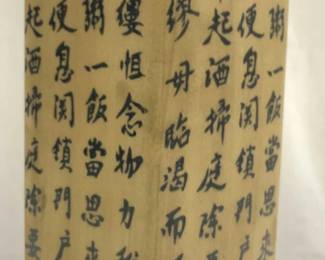 起洒掃庭除要
便息関鎖門戶
粥一飯當思來
縷恒念物力
繆毋臨渴而
起洒掃庭除
便息関鎖門戶
粥一飯當思來